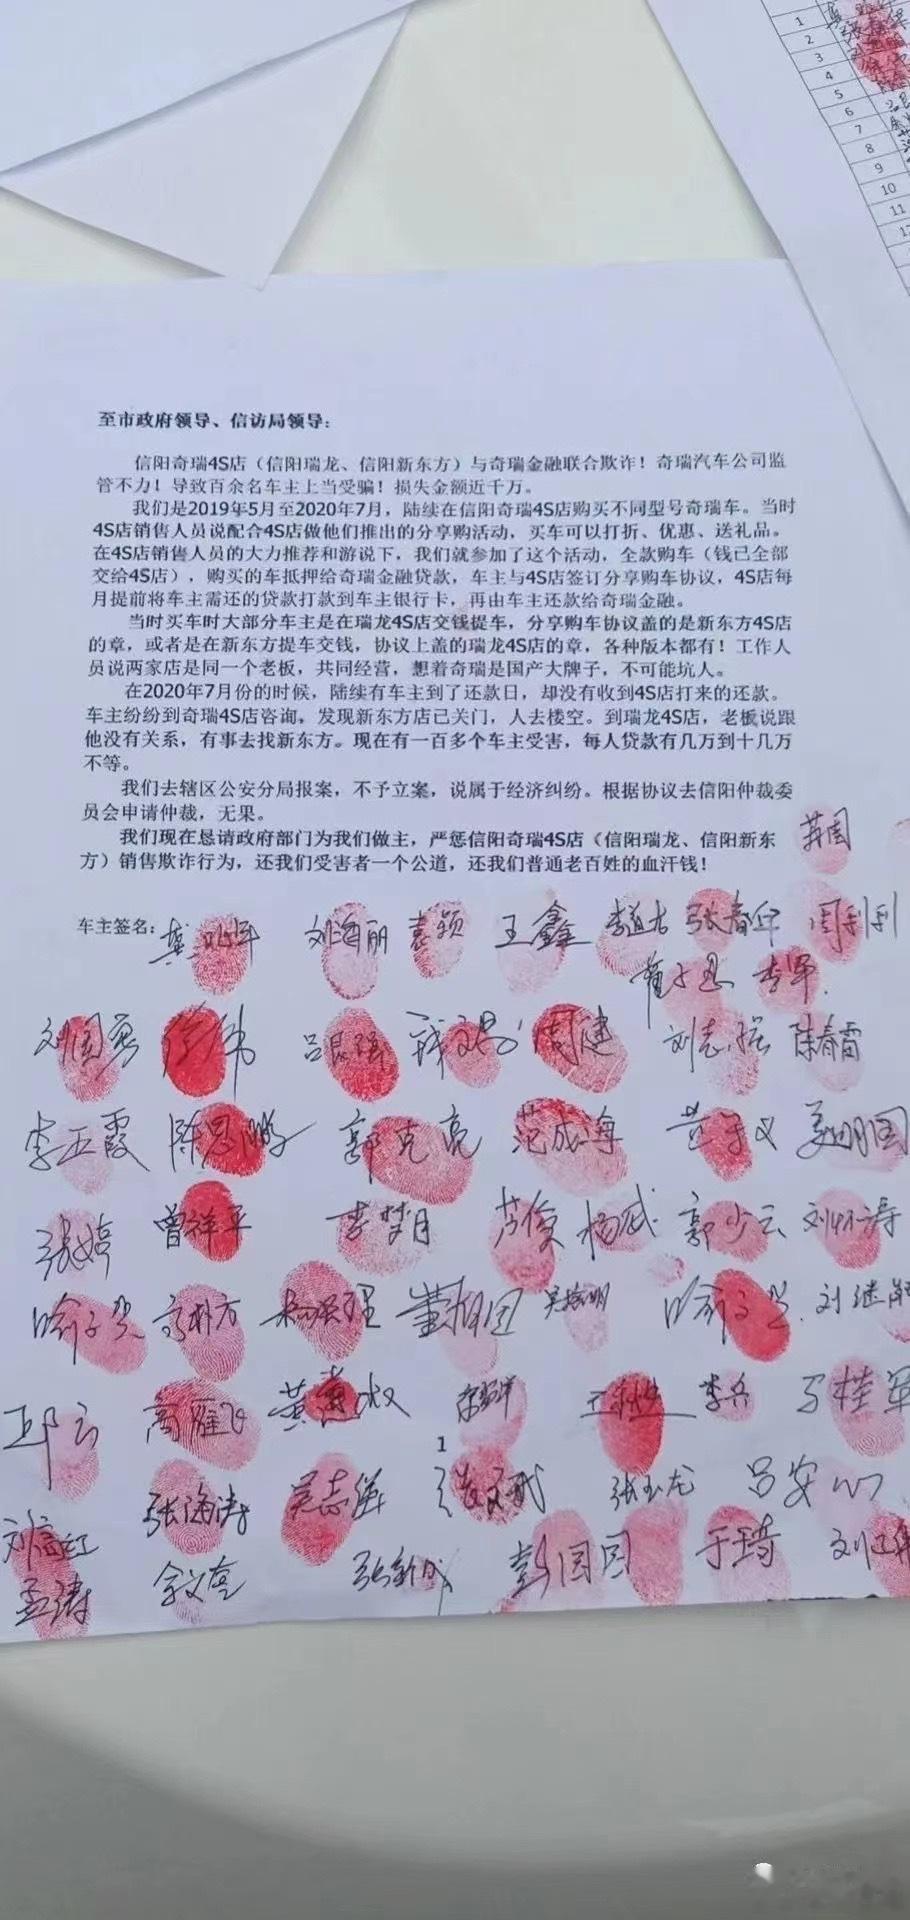 1
2
3
4
5
6
7
8
9
10
11
至市政府领导、信访局领导:
信阳奇瑞4S店（信阳瑞龙、信阳新东方）与奇瑞金融联合欺诈！奇瑞汽车公司监
管不力！导致百余名车主上当受骗！损失金额近千万。
我们是2019年5月至2020年7月，陆续在信阳奇瑞4S店购买不同型号奇瑞车。当时
4S店销售人员说配合4S店做他们推出的分享购活动，买车可以打折、优惠、送礼品。
在4S店销售人员的大力推荐和游说下，我们就参加了这个活动，全款购车（钱已全部
交给4S店），购买的车抵押给奇瑞金融贷款，车主与4S店签订分享购车协议，4S店每
月提前将车主需还的贷款打款到车主银行卡，再由车主还款给奇瑞金融。
当时买车时大部分车主是在瑞龙4S店交钱提车，分享购车协议盖的是新东方4S店
的章，或者是在新东方提车交钱，协议上盖的瑞龙4S店的章，各种版本都有！工作人
员说两家店是同一个老板，共同经营，想着奇瑞是国产大牌子，不可能坑人。
在2020年7月份的时候，陆续有车主到了还款日，却没有收到4S店打来的还款。
车主纷纷到奇瑞4S店咨询，发现新东方店已关门，人去楼空。到瑞龙4S店，老板说跟
他没有关系，有事去找新东方。现在有一百多个车主受害，每人贷款有几万到十几万
不等。
我们去辖区公安分局报案，不予立案，说属于经济纠纷。根据协议去信阳仲裁委
员会申请仲裁，无果。
我们现在恳请政府部门为我们做主，严惩信阳奇瑞4S店（信阳瑞龙、信阳新东
方）销售欺诈行为，还我们受害者一个公道，还我们普通老百姓的血汗钱！
车主签名: 刘海丽 袁颖 王鑫 张春印 周利利
李军
刘国勇 周建 刘志强 陈春雷
李亚霞 陈思 郭克亮 范成海
张婷 曾祥平 李梦月 芦俊 杨威 郭少云 刘怀涛
邱云 高雁飞 李兵
1
张海涛 吴志 张玉龙 吕安
刘 红
孟涛 余文 张新成 彭园园 于琦